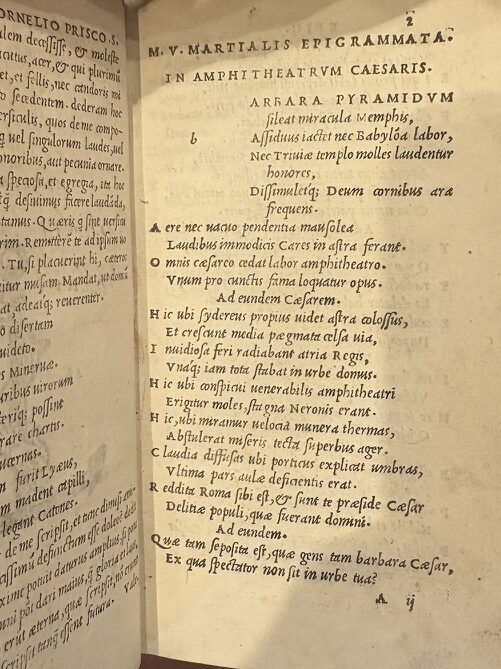 ORNELIO PRISCO.S.
ulem decessisse, & moleste
acutus, acer, & qui plurimũ
et, et fellis, nec candoris mi
ro secedentem. dederam hoc
ersiculis, quos de me compo-
uel singulorum laudes, uel
onoribus, aut pecunia ornare.
speciosa, et egregia, ita hoc
desiuimus facere laudãda,
tamus. Quæris
rim. Remitterẽ te ad ipsum uo
Tu, si placuerint hi, cæteros
itur musam. Mandat, ut domũ
at, adeatq; reuerenter.
õ disertam
uideto.
Minerux.
uribus uirorum
eriq; possint
rare chartis.
ucernas.
furit Lyæus,
m madent capilli,
legant Catones.
de me scripsit, et tunc dimisi
M. V. MARTIALIS EPIGRAMMATA.
IN AMPHITHEATRVM CAESARIS.
2
b
ARBARA PYRAMIDVM
sileat miracula Memphis,
Assiduus iactet nec Babylõa labor,
Nec Triuiæ templo molles laudentur
honores,
Dissimuletq; Deum cornibus ara
frequens.
A ere nec uacuo pendentia mausolea
Laudibus immodicis Cares in astra ferant.
O mnis cæsareo cedat labor amphitheatro.
Vnum pro cunctis fama loquatur opus.
Ad eundem Cæsarem.
H ic ubi sydereus propius uidet astra colossus,
Et crescunt media pægmata celsa uia,
I nuidiosa feri radiabant atria Regis,
Vnaq; iam tota stabat in urbe domus.
H ic ubi conspicui uenerabilis amphitheatri
Erigitur moles, stagna Neronis erant.
H ic, ubi miramur uelocia munera thermas,
Abstulerat miseris tecta superbus ager.
C laudia diffusas ubi porticus explicat umbras,
Vltima pars aulæ deficientis erat.
R eddita Roma sibi est, & sunt te præside Cæsar
Delitiæ populi, quæ fuerant domini.
Ad eundem.
Quæ tam seposita est, quæ gens tam barbara Cæsar,
Ex qua spectator non sit in urbe tua?
A ij